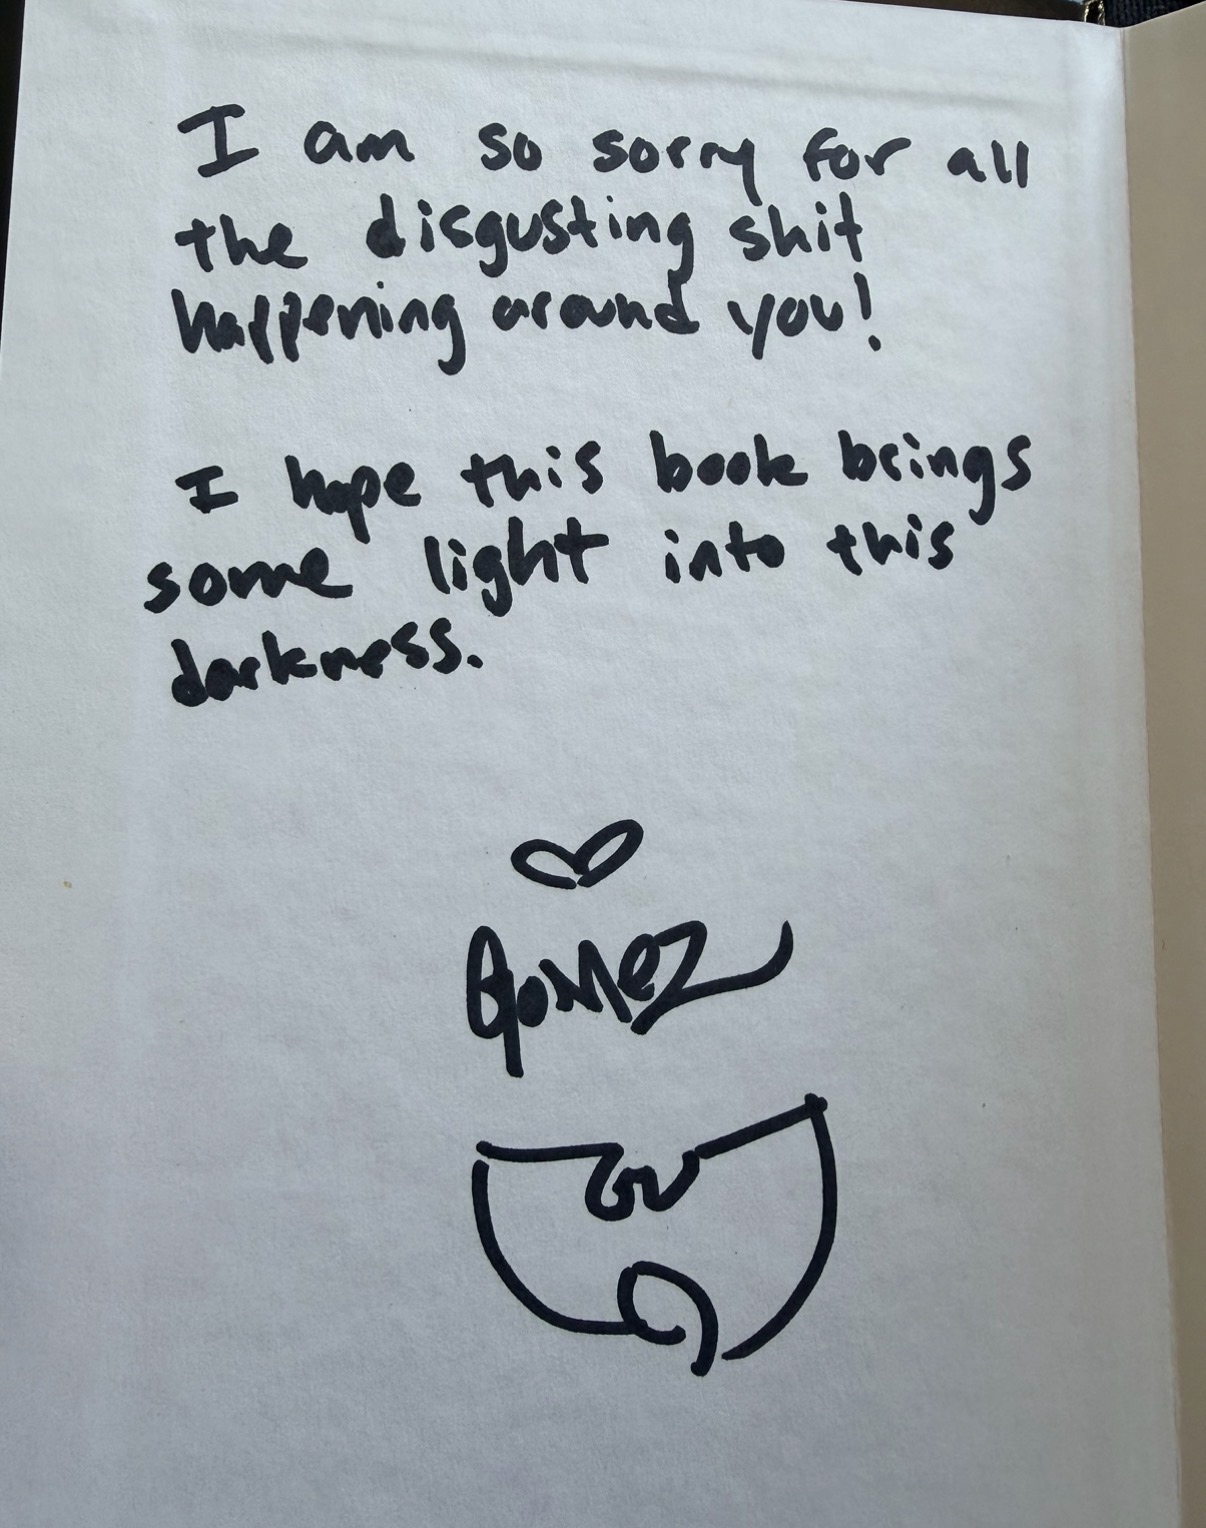 I am so sorry for all
the disgusting shit
happening around you!
I hope this book brings
some light into this
darkness.
Gomez